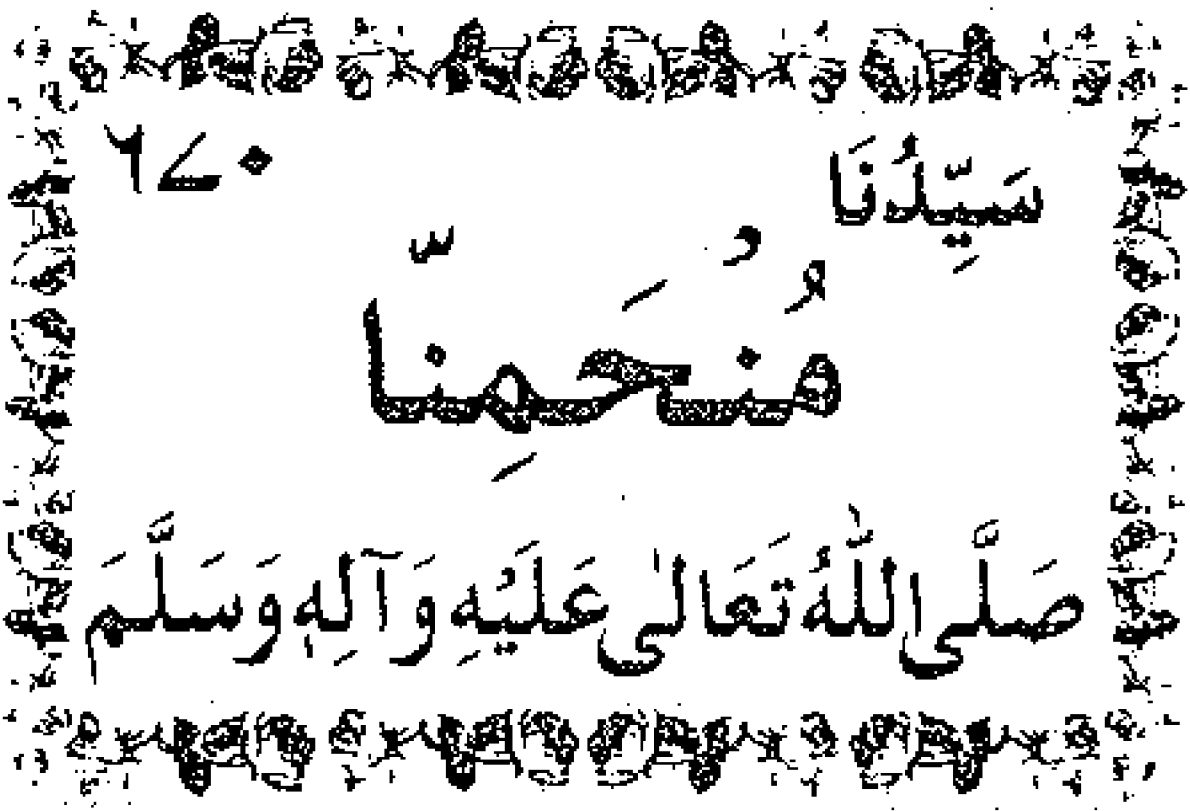 سَيِّدُنَا ۶۷۰
مُنْحَمِنّا
صَلَّى اللّٰهُ تَعَالٰى عَلَيْهِ وَآلِهٖ وَسَلَّمَ